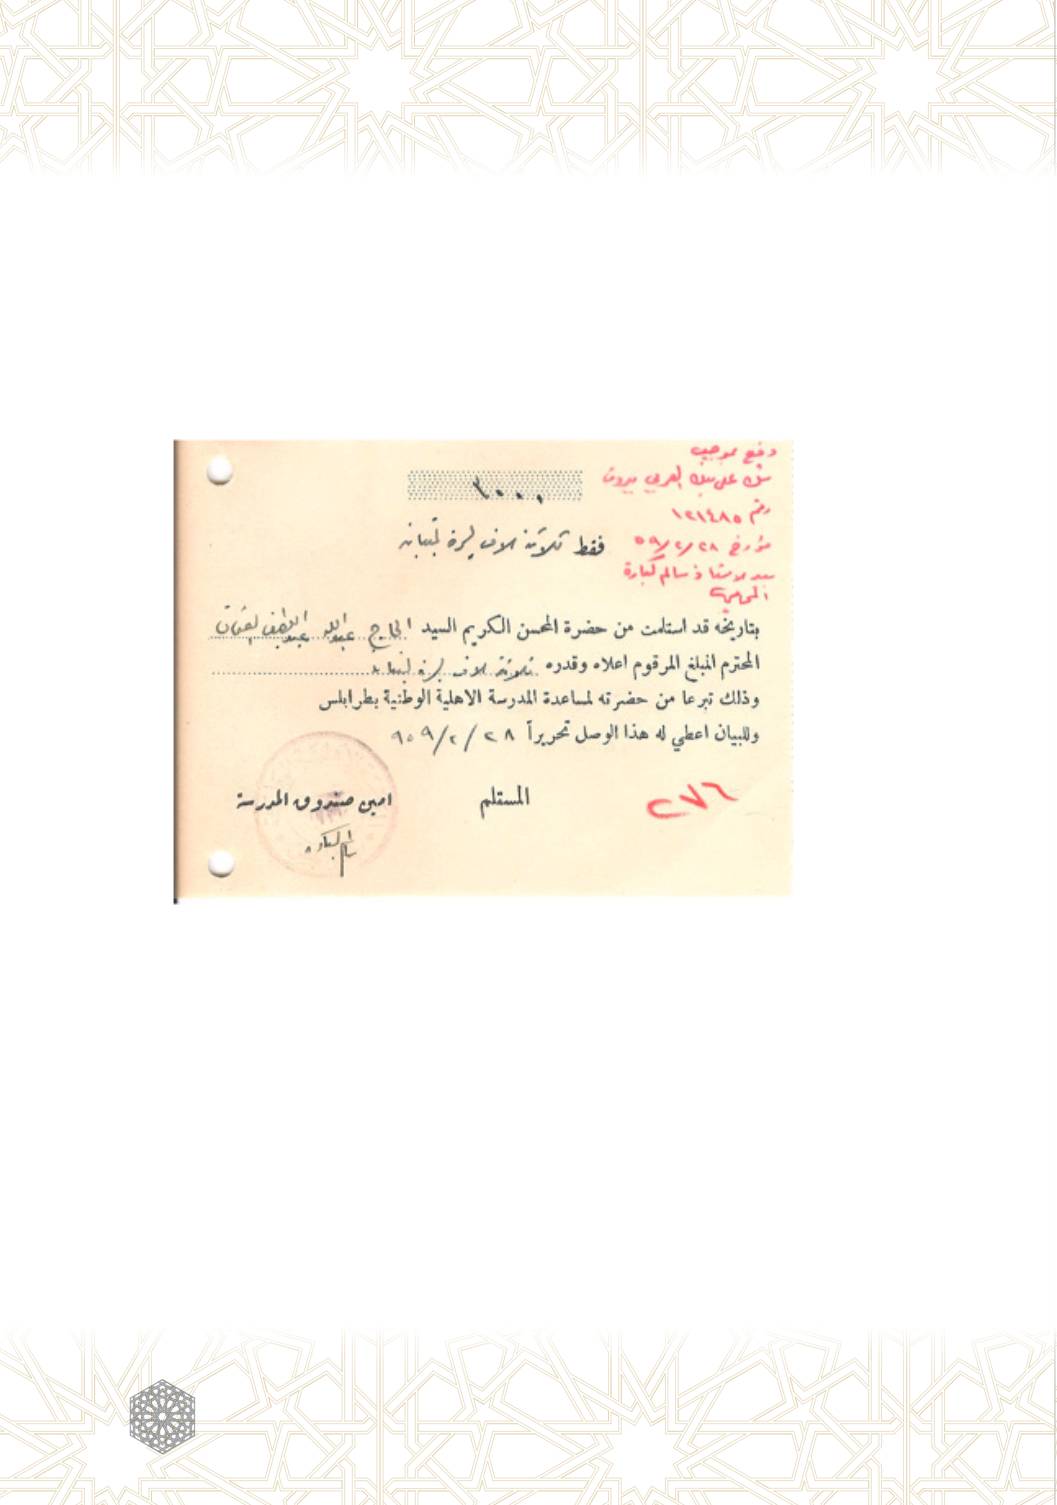 دفع بموجب
شك على بنك العربي بيروت
رقم ١٢١٤٨٥
مؤرخ ٥٩/٢/٢٨
بيد الاستاذ سالم كبارة
المحامي
٣٠٠٠
فقط ثلاثة الاف ليرة لبنانية
بتاريخه قد استلمت من حضرة المحسن الكريم السيد الحاج عبدالله عبداللطيف العثمان
المحترم المبلغ المرقوم اعلاه وقدره ثلاثة الاف ليرة لبنانية
وذلك تبرعا من حضرته لمساعدة المدرسة الاهلية الوطنية بطرابلس
وللبيان اعطي له هذا الوصل تحريراً ٩٥٩/٢/٢٨
٢٧٦ المستلم امين صندوق المدرسة
سالم كباره